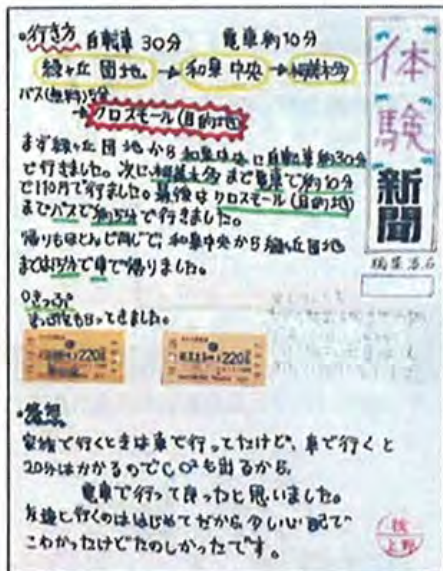 体験新聞
編集者名
・行き方
自転車30分 電車約10分
緑ヶ丘団地→和泉中央→栂美木多
バス(無料)5分
→クロスモール(目的地)
まず緑ヶ丘団地から和泉中央に自転車約30分
で行きました。次に栂美木多まで電車で約10分
で110円で行きました。最後はクロスモール(目的地)
までバスで約5分で行きました。
帰りもほとんど同じで、和泉中央から緑ヶ丘団地
までは15分で車で帰りました。
○きっぷ
220
220
・感想
家族で行くときは車で行ってたけど、車で行くと
20分はかかるのでCO²も出るから、
電車で行って良ったと思いました。
友達と行くのははじめてだから少し心配で
こわかったけどたのしかったです。
検
上野